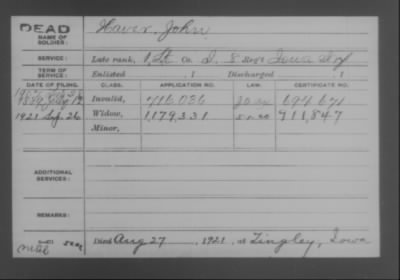 DEAD
NAME OF SOLDIER: Haver, John
SERVICE: Late rank, 1 Lt Co. I, 8 Reg't Iowa
TERM OF SERVICE: Enlisted , 1 Discharged , 1
DATE OF FILING. CLASS. APPLICATION NO. LAW. CERTIFICATE NO.
Invalid, 716.036 694671
1921 Sep. 26 Widow, 1,179,331 911,847
Minor,
ADDITIONAL SERVICES:
REMARKS:
Died Aug 27, 1921, at Tingley, Iowa